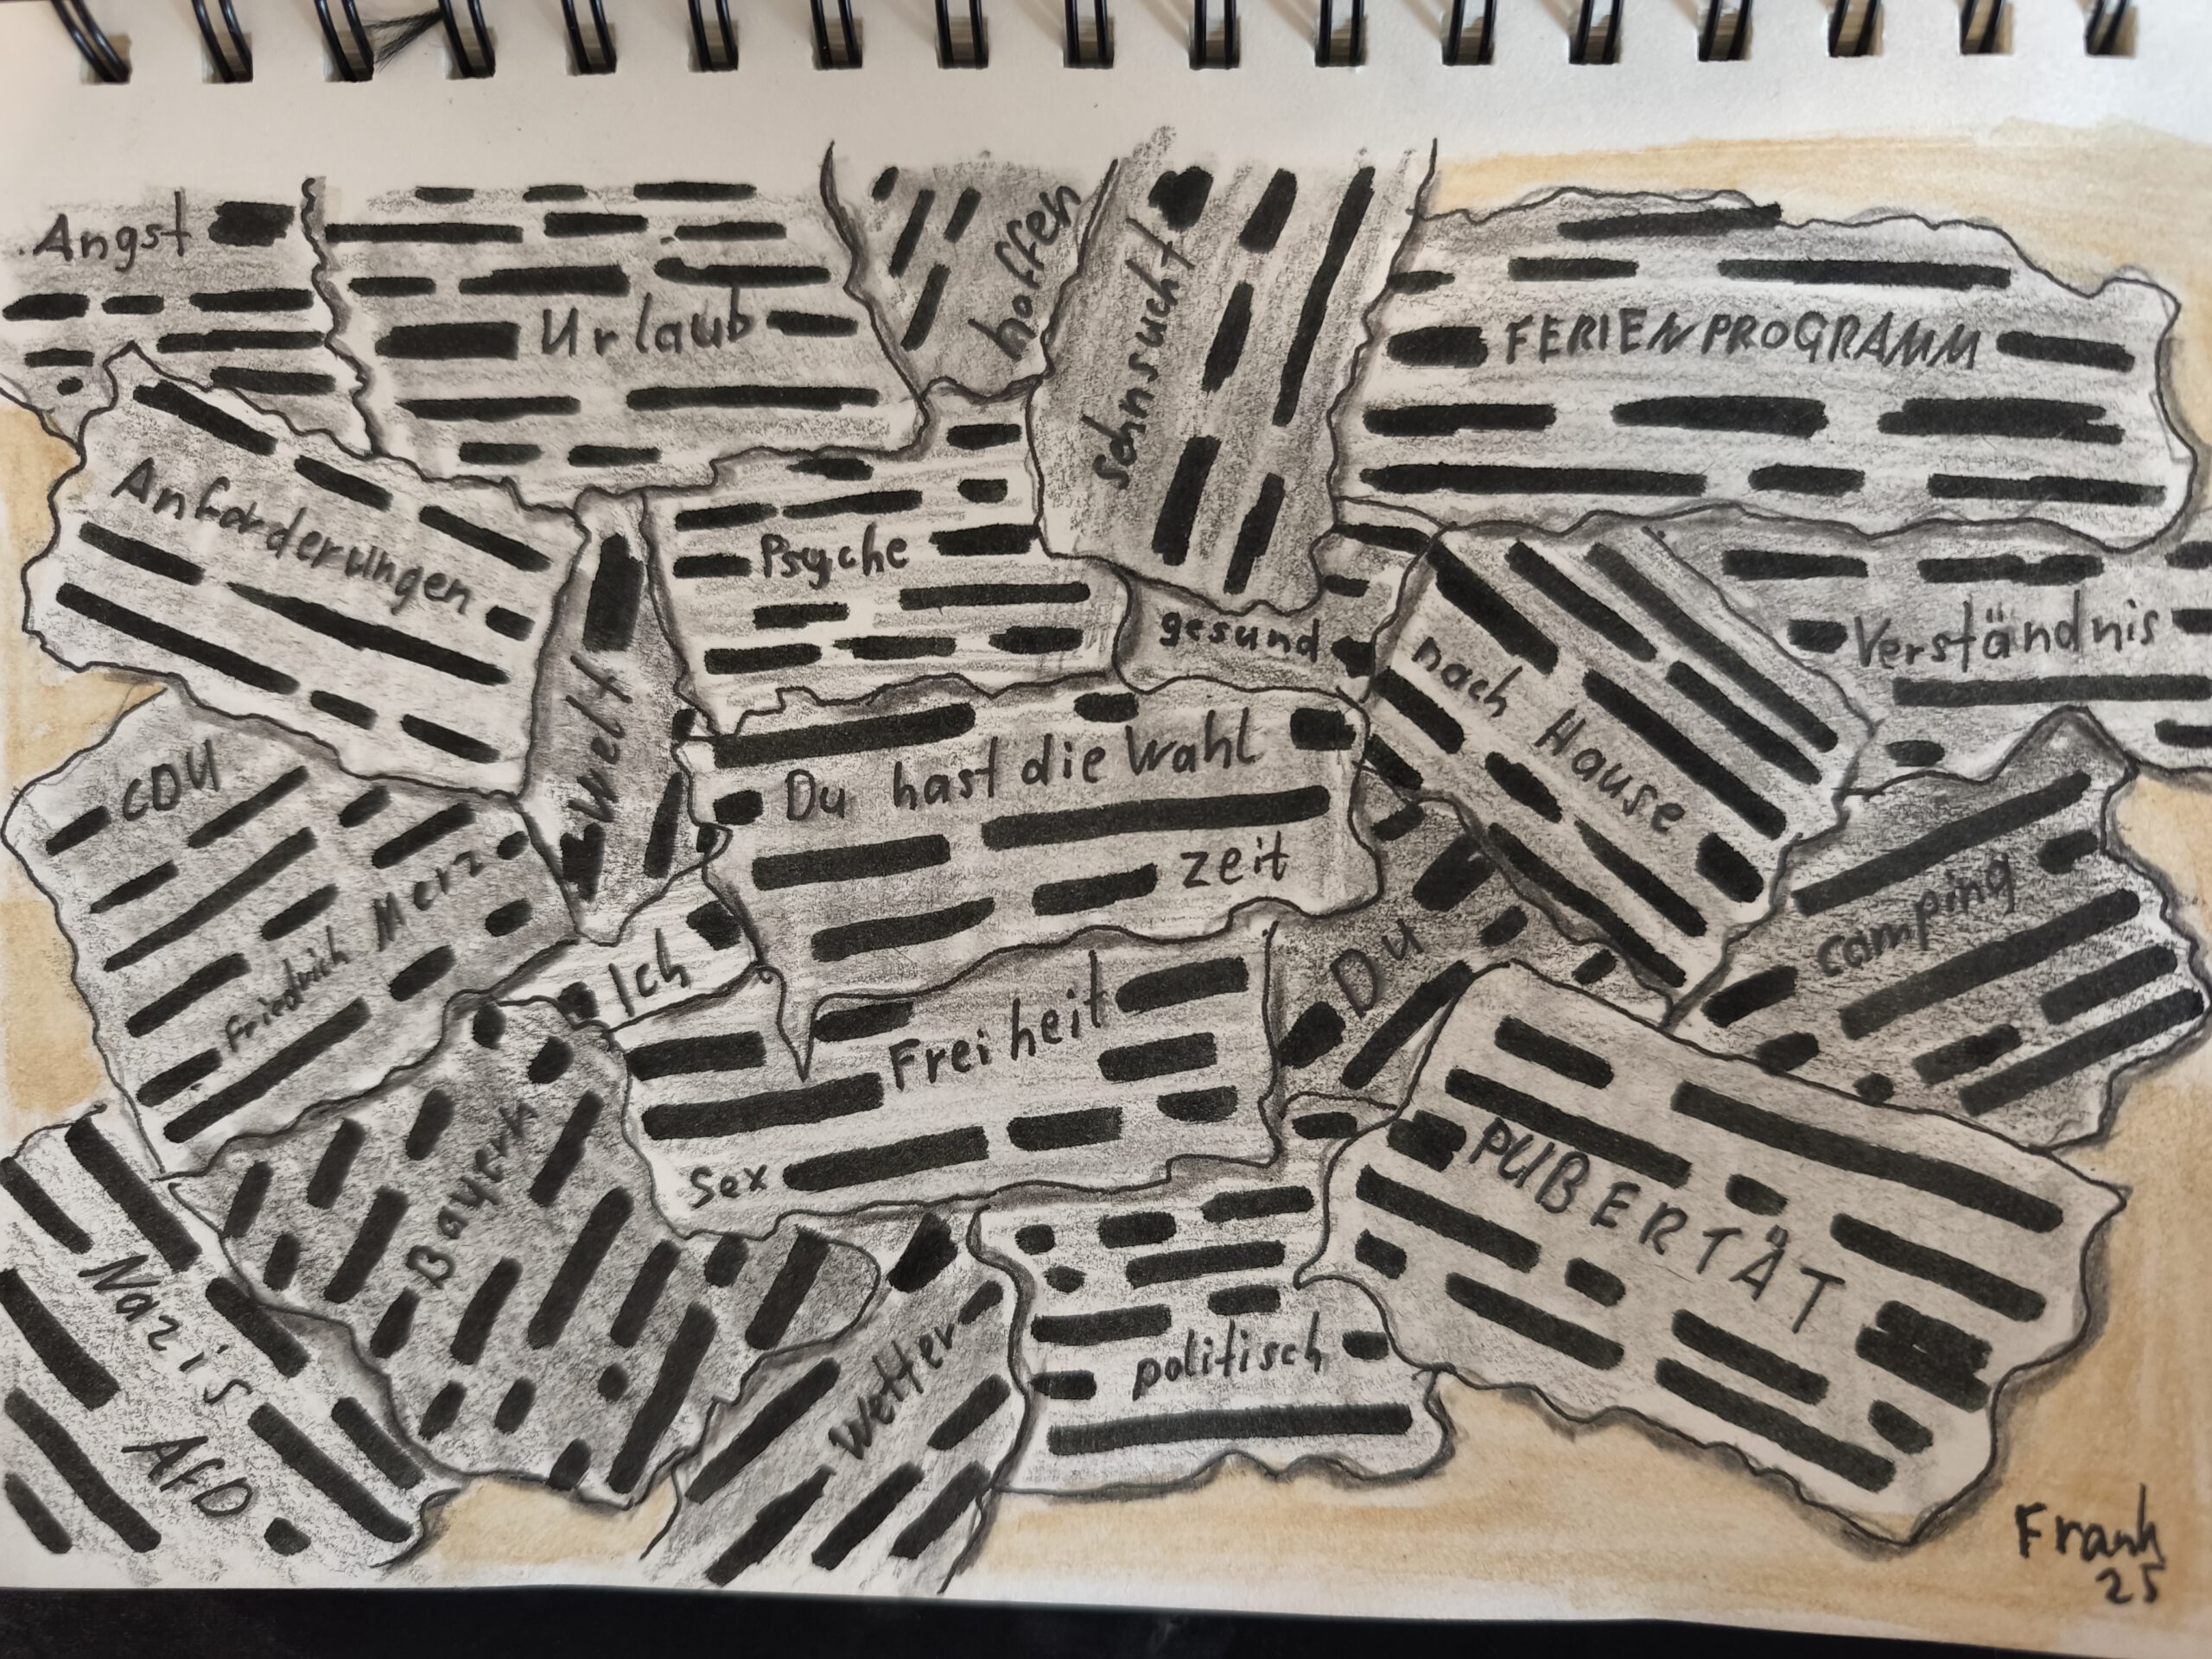 Angst
Urlaub
hoffen
sehnsucht
FERIENPROGRAMM
Anforderungen
Psyche
gesund
nach Hause
Verständnis
Welt
CDU
Friedrich Merz
Du hast die Wahl
zeit
camping
Ich
Du
Freiheit
Sex
Bayern
PUBERTÄT
Nazis
AfD
Wetter
politisch
Frank
25